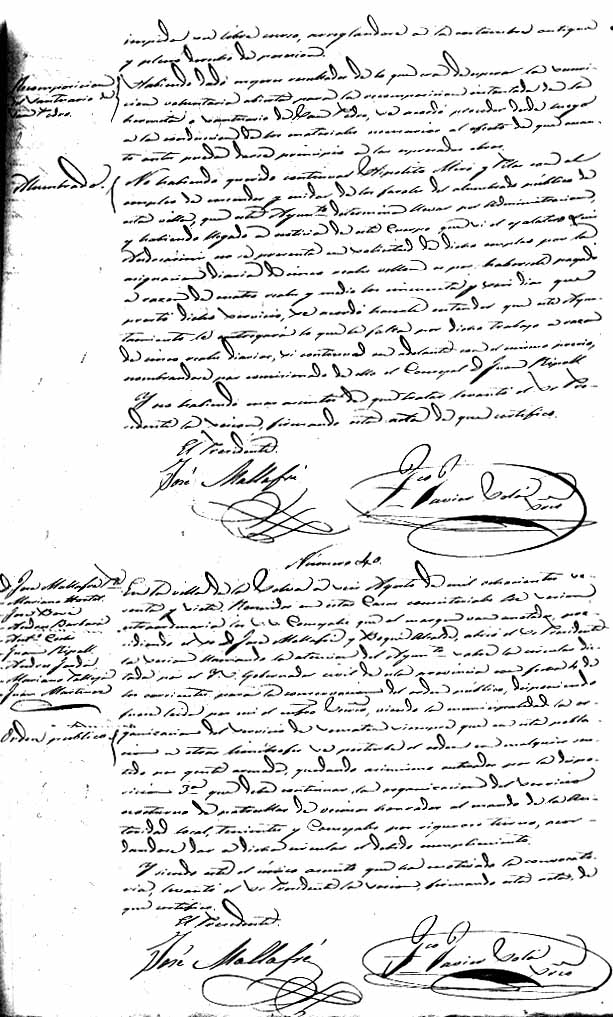 impida su libre curso, arreglandose a la costumbre antigua
y pleno derecho de posesion.
Recomposicion
santuario de
San Pedro.
Habiendo dado mejores resultados de lo que era de esperar la suscri-
cion voluntaria abierta para la recomposicion instantada de la
hermita o santuario de San Pedro, se acordó proceder desde luego
a la conduccion de los materiales necesarios al objeto de que cuan-
to antes pueda darse principio a las espresadas obras.
Alumbrado.
No habiendo querido continuar Hipolito Miró y Vila con el
empleo de encender y cuidar de los faroles del alumbrado público de
esta villa, que este Ayunto determinó llevar por administracion,
y habiendo llegado a noticia de este Cuerpo que si el espulado
no se presenta en solicitud de dicho empleo por la
asignacion diaria de cinco reales vellon es por haberle pagado
a razon de cuatro reales y medio los cincuenta y seis dias que
prestó dicho servicio, se acordó hacerle entender que este Ayun-
tamiento le entregará lo que le falta por dicho trabajo a razon
de cinco reales diarios, si continua en adelante con el mismo precio,
nombrandose por comisionado de ello el Concejal D. Juan Ripoll.
Y no habiendo mas asuntos de que tratar levantó el Sr Pre-
sidente la sesion, firmando esta acta de que certifico.
El Presidente
José Mallafré
Fco P.
Javier Solá
Srio
Numero 40.
D. José Mallafré Pte
Mariano
José Boré
Andres Barbará
Anto
Juan Ripoll
Andres
Mariano
Juan Martinez
En la villa de la Selva a seis Agosto de mil ochocientos se-
tenta y siete. Reunidos en estas Casas consistoriales en sesion
extraordinaria los Sres Concejales que al margen van anotados, pre-
sidiendo el Sr D. José Mallafré y Alcalde, abrió el Sr Presidente
la sesion llamando la atencion del Ayunto sobre la circular dic-
tada por el Sr Gobernador civil de esta provincia con fecha 4 de
los corrientes para la conservacion del orden público, disponiendo
fuera leida por mi el infro Srio, siendo la municipalidad la or-
Orden publico
ganizacion del servicio de somaten siempre que en esta pobla-
cion u otras limitrofes se perturbe el orden en cualquier sen-
tido por gente armada, quedando asimismo enterados por la dispo-
sicion 3ª que debe continuar la organizacion del servicio
nocturno de patrullas de vecinos honrados al mando de la Au-
toridad local, tenientes y Concejales por riguroso turno, acor-
dandose dar a dicha circular el debido cumplimiento.
Y siendo este el único asunto que ha motivado la convocato-
ria, levantó el Sr Presidente la sesion, firmando esta acta, de
que certifico.
El Presidente
José Mallafré
Fco P.
Javier Solá
Srio